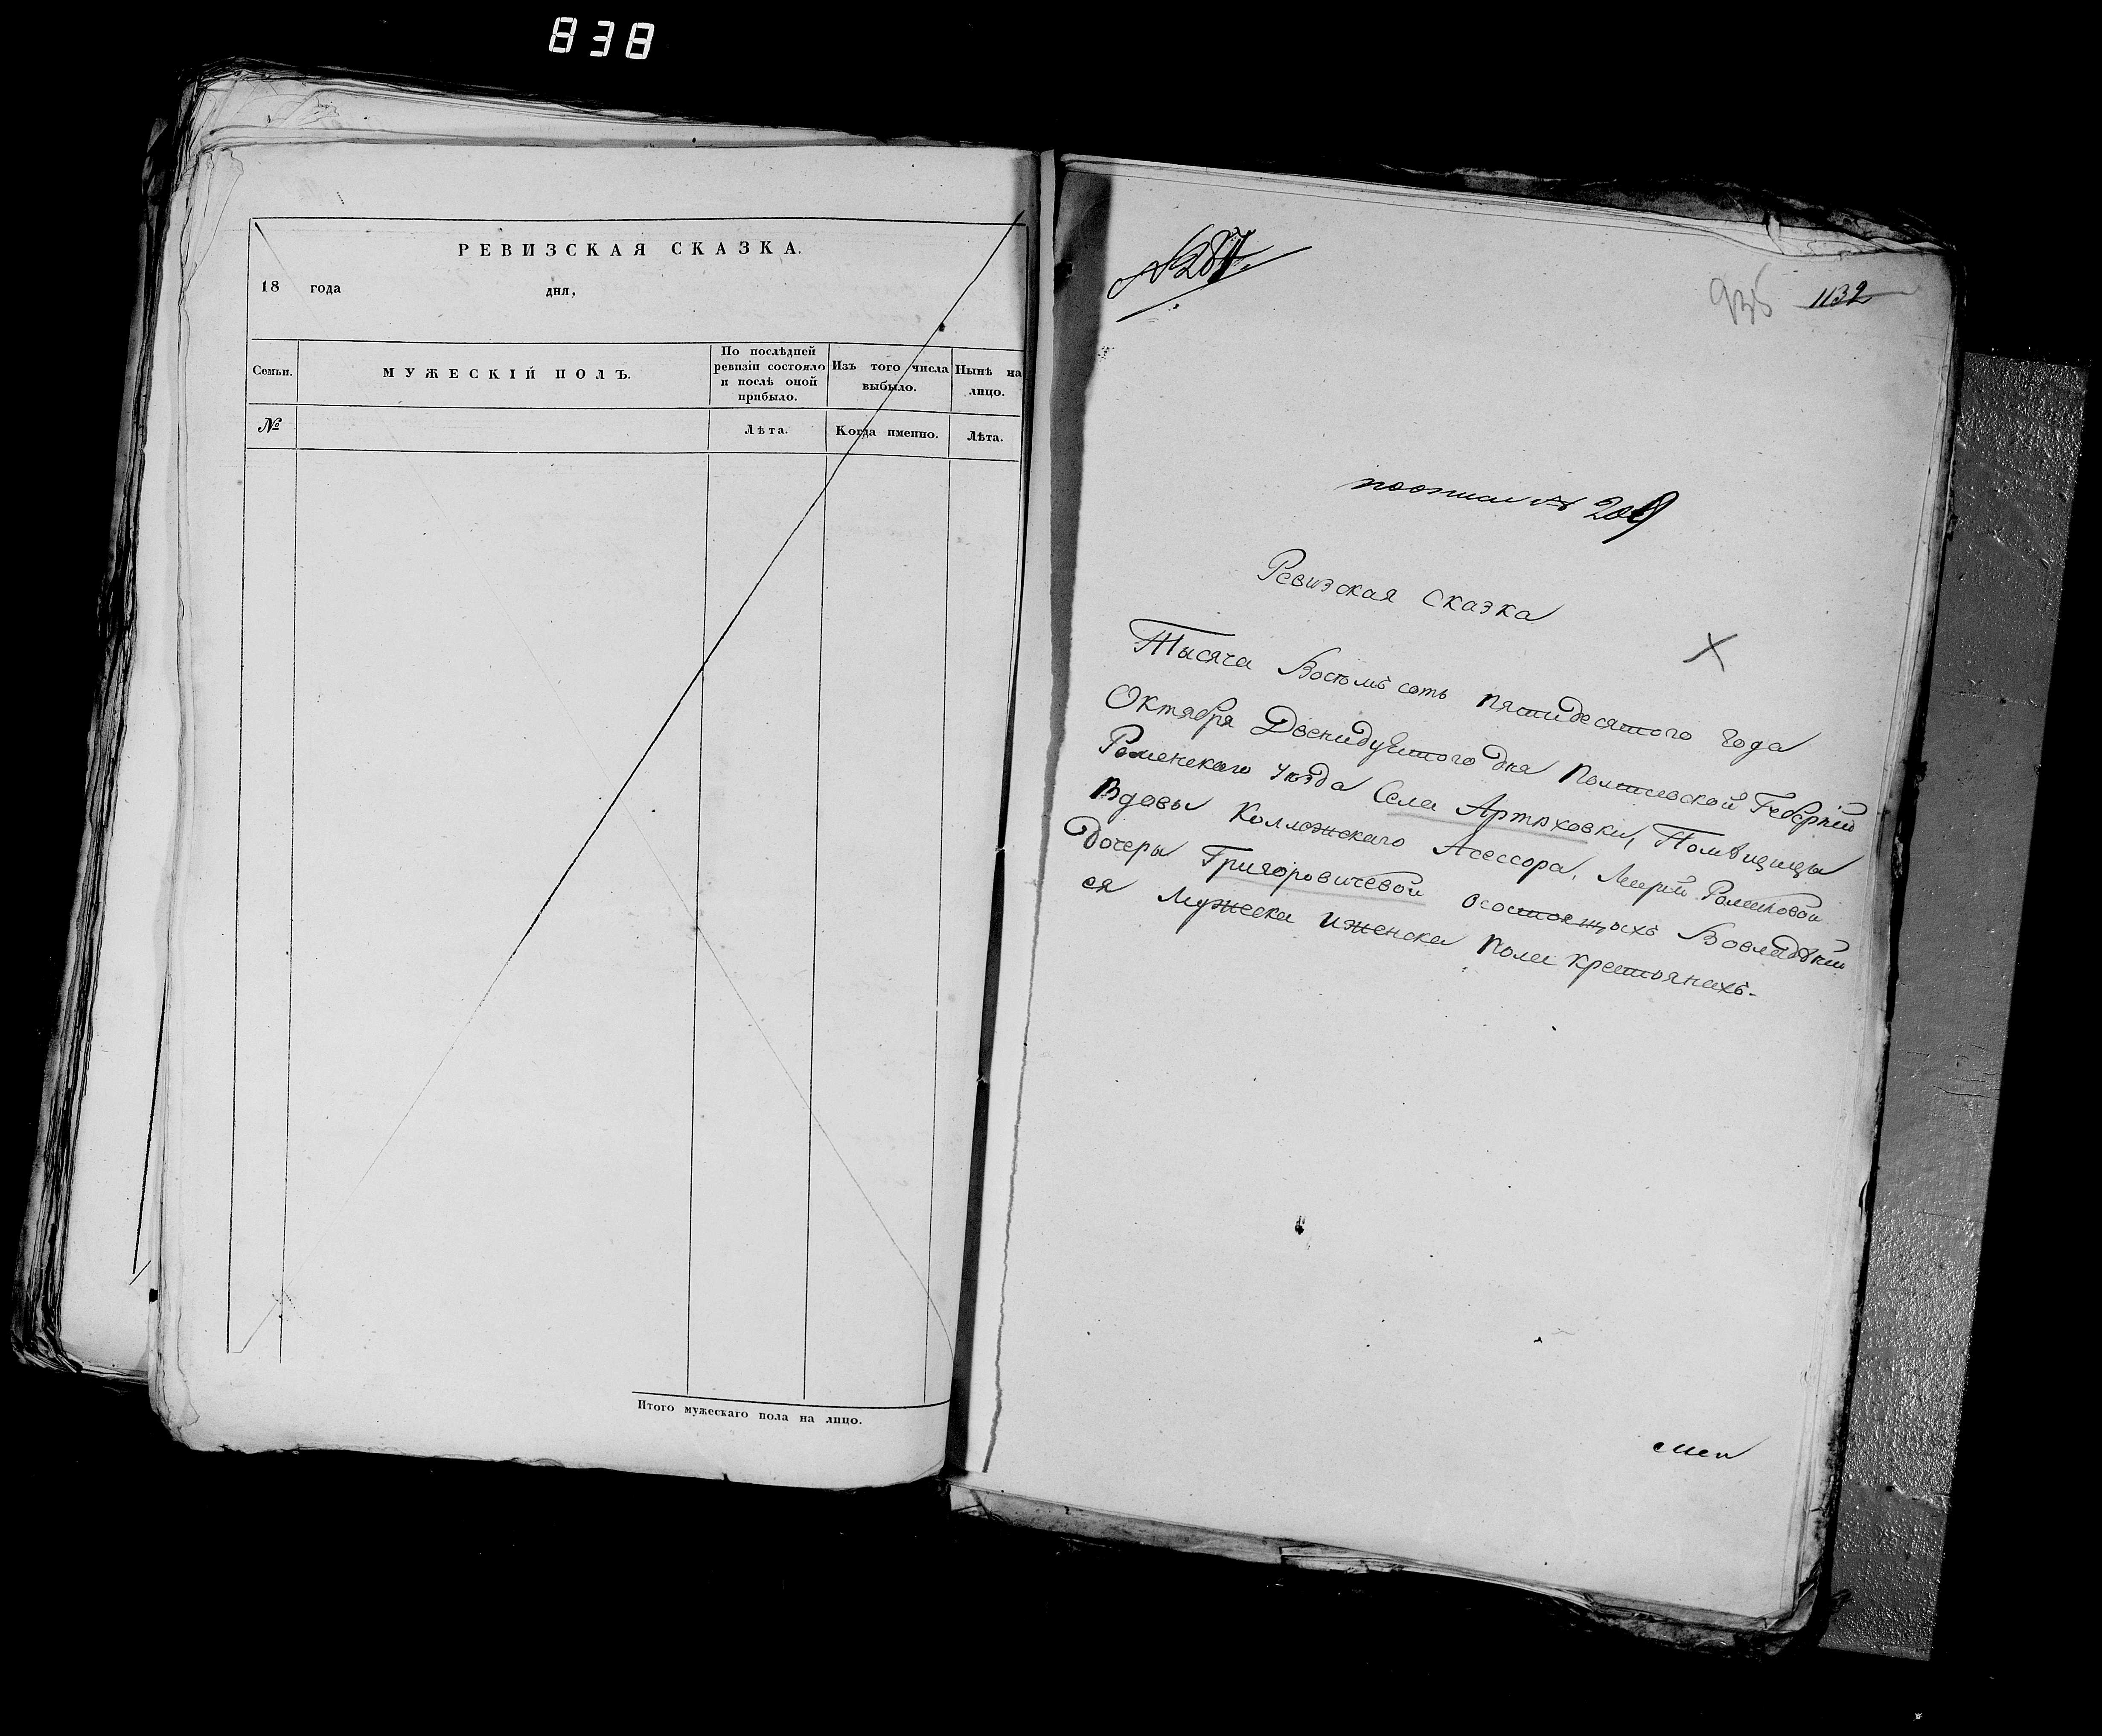 838
РЕВИЗСКАЯ СКАЗКА.
18 года дня,
Семьи. МУЖЕСКІЙ ПОЛЪ. По послѣдней ревизіи состояло и послѣ оной прибыло. Изъ того числа выбыло. Нынѣ на лицо.
№ Лѣта. Когда именно. Лѣта.
Итого мужескаго пола на лицо.
№ 287.
935 1132
№ 209
Ревизская сказка
Тысяча Восемъ сотъ пятидесятого года
Октября Двенидцатого дня Полтавской Губерніи
Роменскаго уѣзда Села Артюховки, Помѣщицы
Вдовы Коллежскаго Асессора, Маріи Романовой
дочеры Григоровичевой осостоящыхъ Вовладѣніи
ея Мужеска иженска Пола крестьянахъ.